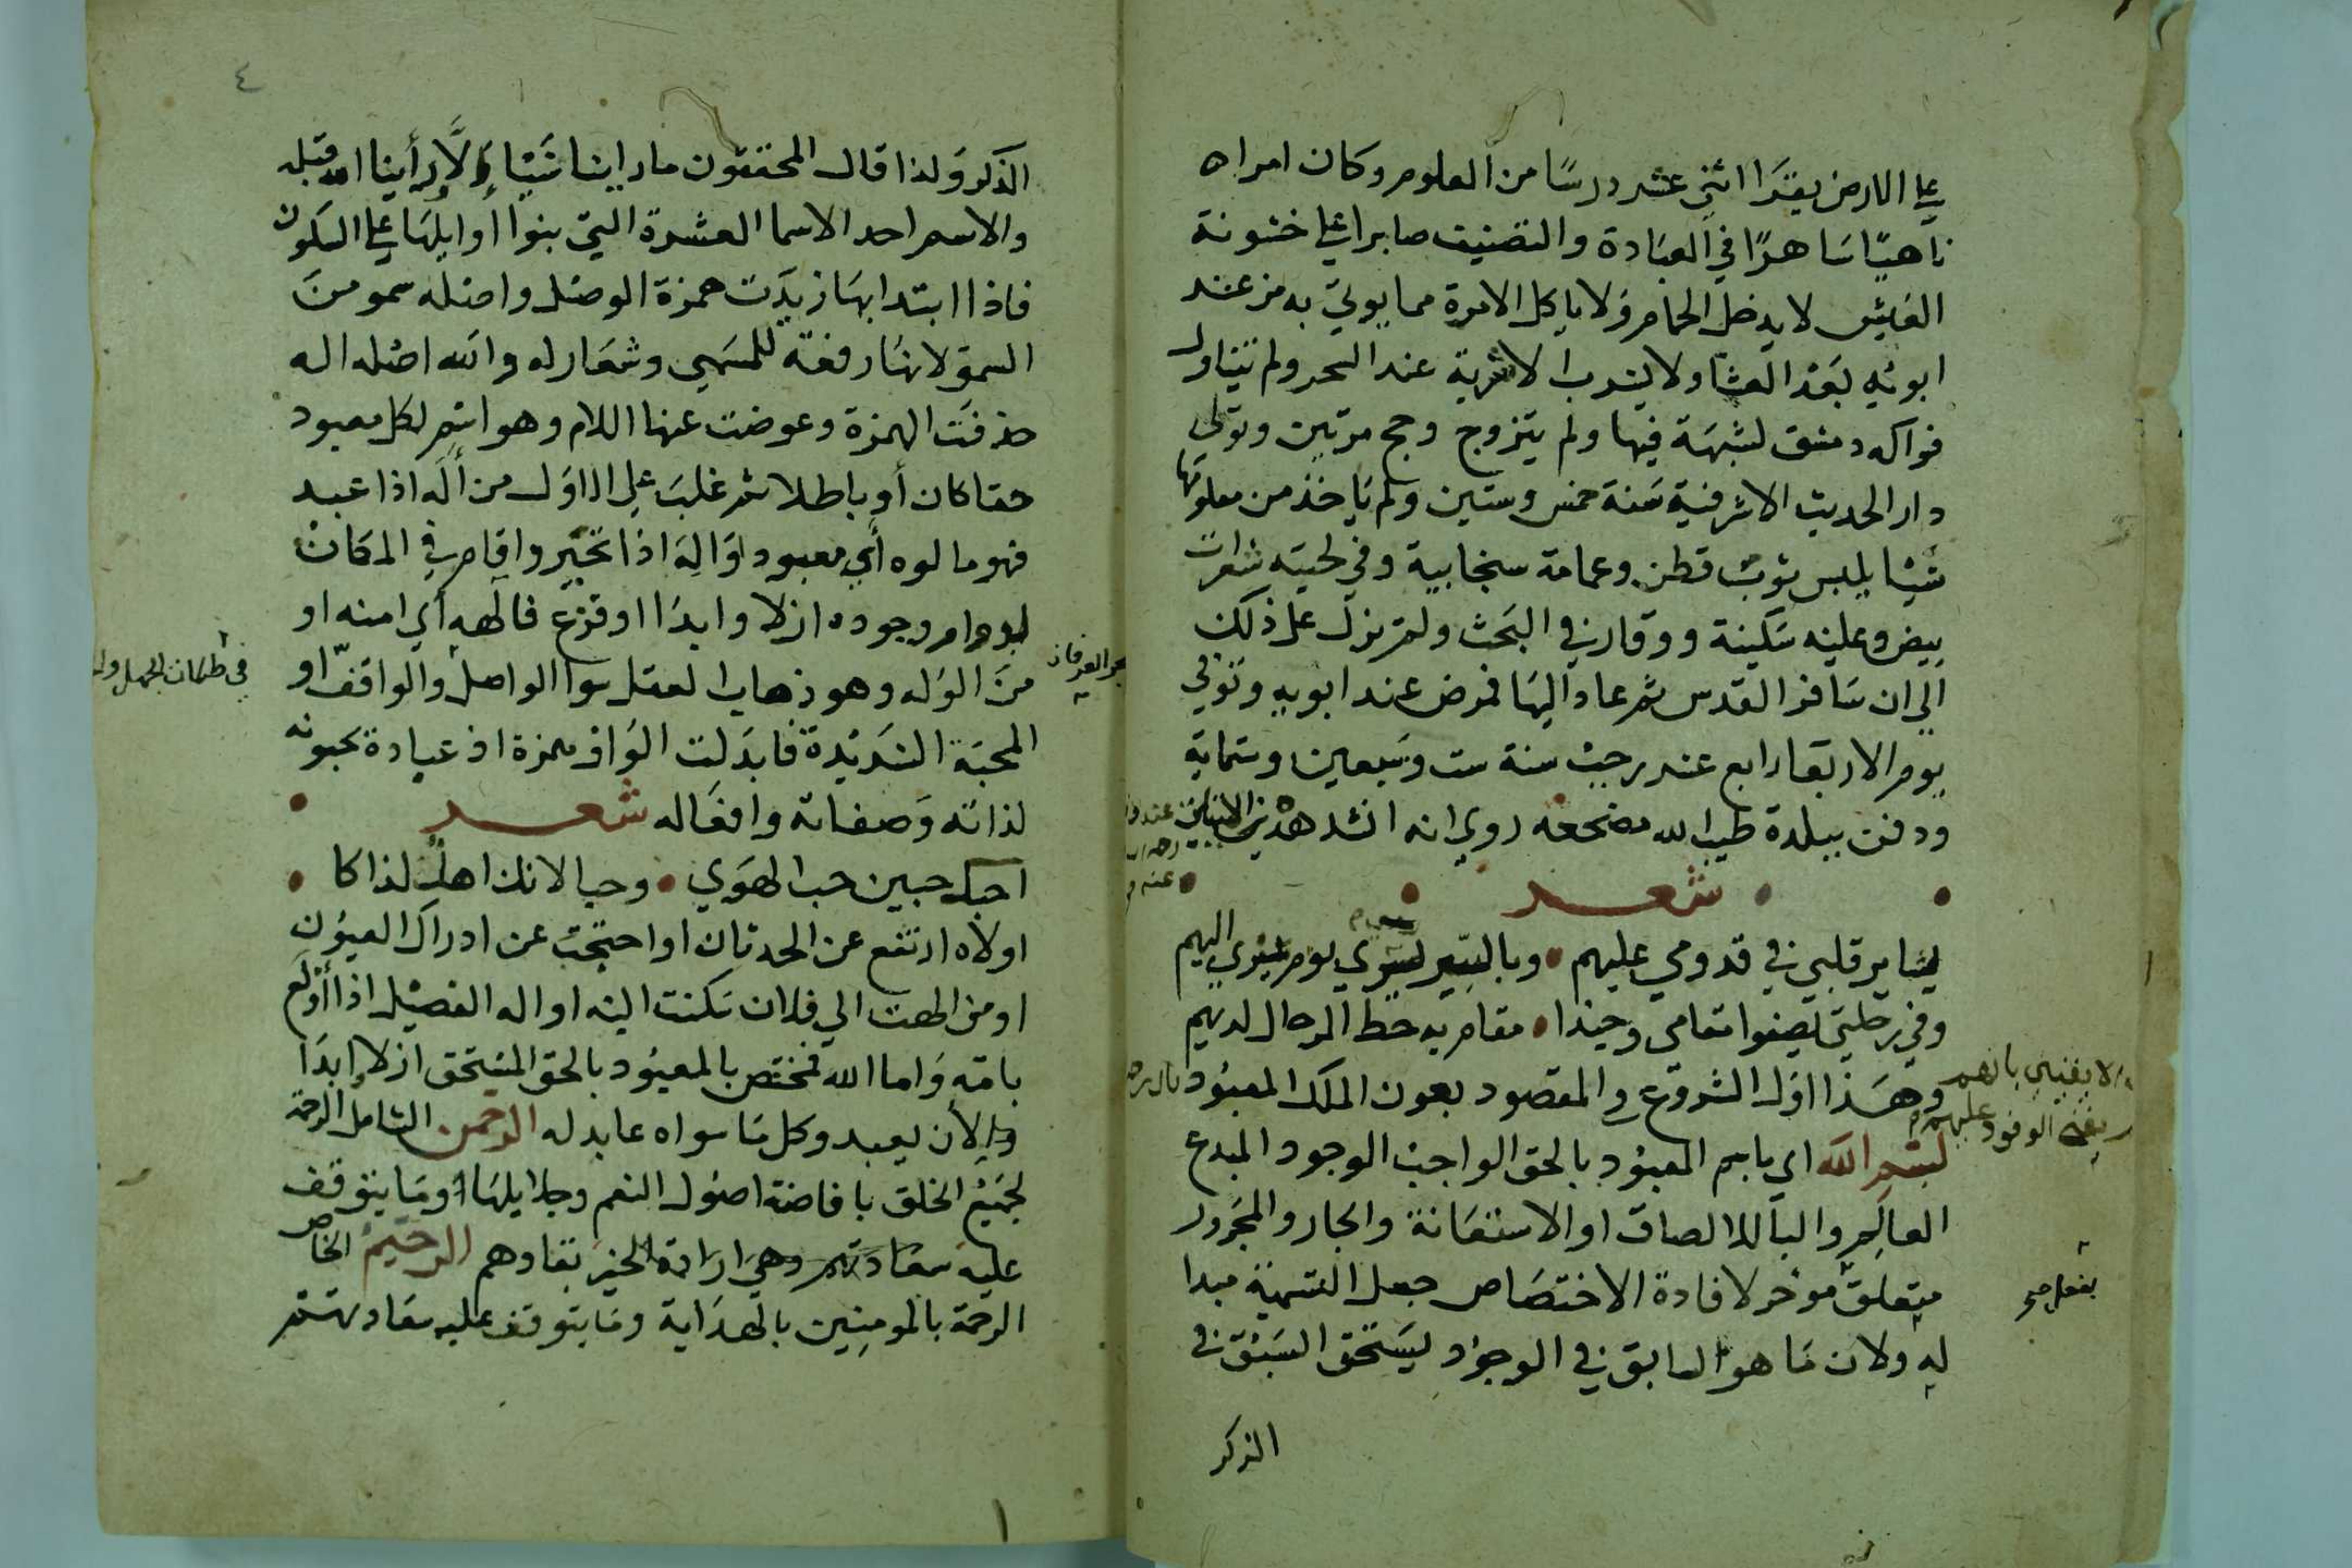 علي الارض يقرا اثني عشر درسًا من العلوم وكان امراه
ناهيًا ساهرًا في العبادة والتصنيف صابرا علي خشونة
العيش لا يدخل الحمام ولا ياكل الا مرة مما يوتي به من عند
ابويه بعد العشا ولا يشرب الا شربة عند السحر ولم يتناول
فواكه دمشق لشبهة فيها ولم يتزوج وحج مرتين وتولي
دار الحديث الاشرفية سنة خمس وستين ولم ياخذ من معلومها
شيئا يلبس ثوب قطن وعمامة سنجابية وفي لحيته شعرات
بيض وعليه سكينة ووقار في البحث ولم يزل علي ذلك
الي ان سافر القدس ثم عاد اليها فمرض عند ابويه وتوفي
يوم الاربعا رابع عند رجب سنة ست وسبعين وستماية
ودفن ببلدة طيب الله مضجعه روي انه انشد هذين البيتين عند
شعر
بشاير قلبي في قدومي عليهم وبالسير يوم اليهم
وفي رحلتي يصفوا مقامي وحبذا مقام به حط الرحال لديهم
وهذا اول الشروع والمقصود بعون الملك المعبود
لا يفنيني بانهم
الوفود عليهم
بسم الله اي باسم المعبود بالحق الواجب الوجود المبدع
العالم والبا للالصاق او الاستعانة والجار والمجرور
متعلق موخر لافادة الاختصاص جعل التسمية مبدا
بفعل صح
له ولان ما هو السابق في الوجود يستحق السبق في
الذكر
٤
الذكر ولذا قال المحققون ما راينا شيئا الا ورأينا الله قبله
والاسم احد الاسما العشرة التي بنوا اوايلها علي السكون
فاذا ابتدا بها زيدت همزة الوصل واصله سمو من
السمو لانها رفعة للمسمي وشعار له والله اصله اله
حذفت الهمزة وعوضت عنها اللام وهو اسم لكل معبود
حقا كان أو باطلا ثم غلب علي الاول من أله اذا عبد
فهو مالوه أي معبود او اله اذا تحير واقام في المكان
لدوام وجوده ازلا وابدا او فزع فالهه أي امنه او
من الوله وهو ذهاب العقل سوا الواصل والواقف او
المحبة الشديدة فابدلت الواو همزة اذ عبادة يحبونه
لذاته وصفاته وافعاله شعر
احبك حبين حب الهوي وحبا لانك اهل لذاكا
او لاه ارتفع عن الحدثان او احتجب عن ادراك العيون
او من الهت الي فلان سكنت اليه او اله الفصيل اذا أولع
بامه واما الله فمختص بالمعبود بالحق المستحق ازلا وابدا
لأن يعبد وكل ما سواه عابد له الرحمن الشامل الرحمة
لجميع الخلق بافاضة اصول النعم وجلايلها او ما يتوقف
عليه سعادتهم وهي ارادة الخير بقاوهم الرحيم الخاص
الرحمة بالمومنين بالهداية وما يتوقف عليه سعادتهم